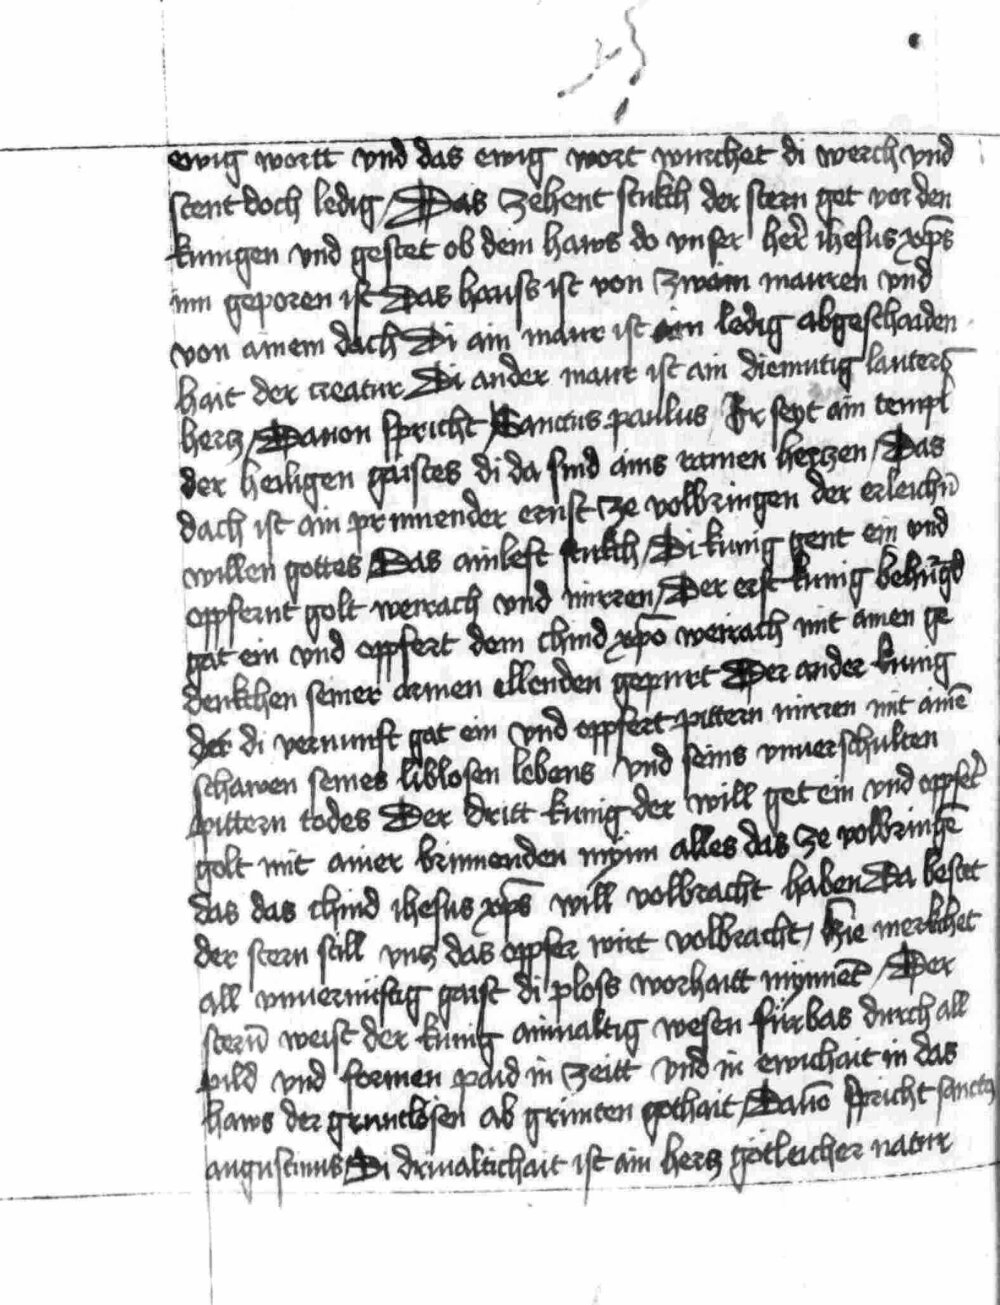 ewig wortt vnd das ewig wort wurchet di werch vnd
stent doch ledig / Das zehent stukch der stern get vor den
kunigen vnd gestet ob dem haws do vnser her̄ ihesus xp̄s
inn geporen ist Das hauss ist von zwain mauren vnd
von ainem dach Di ain maur ist ain ledig abgeschaiden
hait der creatur Di ander maur ist ain diemutig lauters
hertz / Dauon spricht Sanctus paulus Ir seyt ain templ
der heiligen gaistes di da sind ains rainen hertzen / Das
dach ist ain prinnender ernst ze volbringen der erleichn̄
willen gottes Das ainleft stukch / Di kunig gent ein vnd
oppfernt golt weirach vnd mirren / Der erst kunig
gat ein vnd oppfert dem chind xp̄o weirach mit ainen ge
denkchen seiner armen ellenden gepurt Der ander kunig
der di vernunft gat ein vnd oppfert pittern mirren mit ainē
schawen seines liblosen lebens vnd seins vnuerschulten
pittern todes Der dritt kunig der will get ein vnd oppfert
golt mit ainer brinnenden mynn alles das ze volbringē
das das chind ihesus xp̄s will volbracht haben Da bestet
der stern still vntz das oppfer wirt volbracht / Hie merkchet
all vnuernüftig gaist di ploss worhaitt mynnet / Der
stern̄ weist der kunig ainualtig wesen fürbas durch all
pild vnd formen paid in zeitt vnd in ewichait in das
haws der gruntlosen ab grunten gothait / Dauō spricht sanctus
augustinus Di driualtichait ist ain hertz gotleicher natur